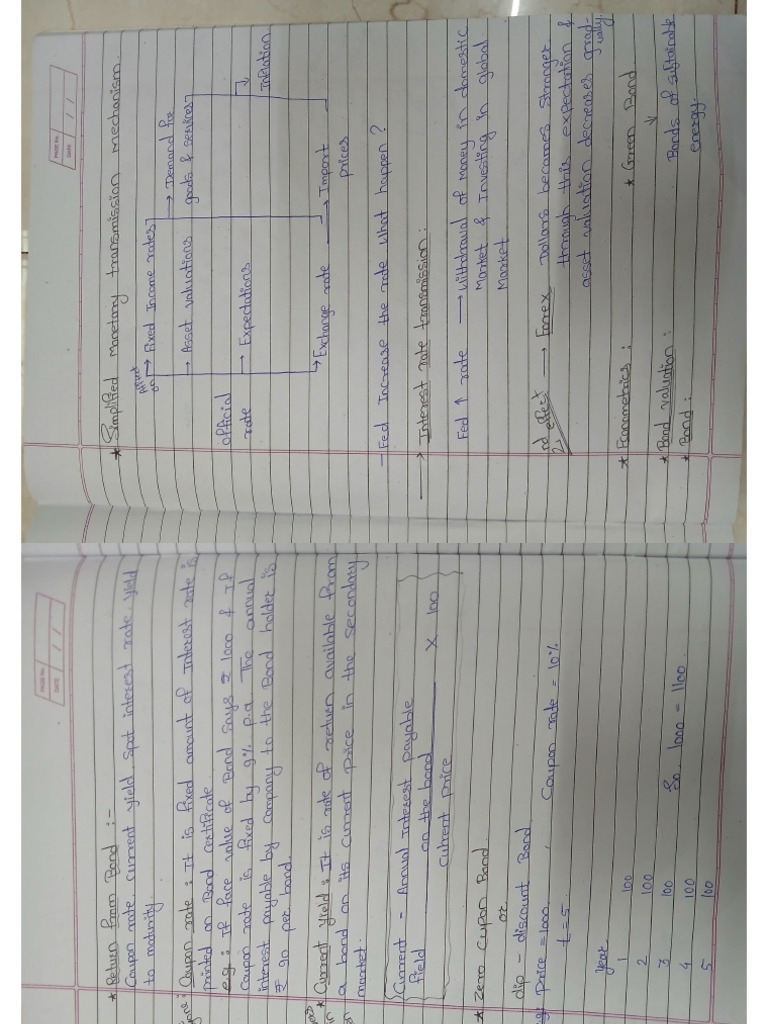 PAGE No.
DATE / /
* Simplified Monetary transmission mechanism.
affect on
→ Fixed Income rates
→ Demand for
goods & services
→ Asset valuations
official
rate
→ Expectations
Inflation
→ Exchange rate → Import
prices
- Fed Increase the rate what happen?
→ Interest rate transmission:
Fed ↑ rate → Withdrawal of Money in domestic
Market & Investing in global
Market
2nd effect → Forex Dollars becomes stronger
through this expectation &
asset valuation decreases gradually.
* Econometrics : * Green Bond
↓
* Bond valuation : Bonds of sustainable
* Bond : energy.
PAGE No.
DATE / /
* Return from Bond :-
Coupon rate, current yield, spot interest rate, yield
to maturity
Coupon rate : It is fixed amount of Interest rate is
printed on Bond certificate.
eg : If face value of Bond says ₹ 1000 & If
Coupon rate is fixed by 9% p.a. The annual
interest payable by company to the Bond holder is
₹ 90 per bond.
* Current yield : It is rate of return available from
a bond on its current price in the secondary
market.
Current = Annual Interest payable
yield on the bond × 100
Current price
* Zero Cupon Bond
or
dip - discount Bond
eg: price = 1000, Coupon rate = 10%
t = 5
Year
1 100
2 100
3 100 So, 1000 = 1100
4 100
5 100